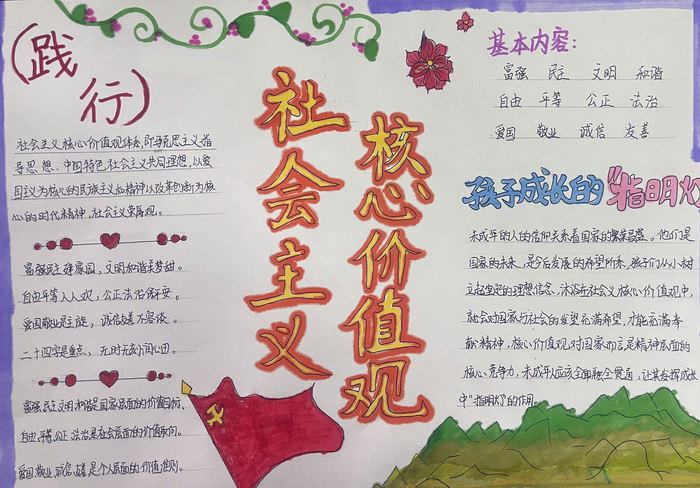 (践行)
社会主义核心价值观体系,即马克思主义指
导思想、中国特色社会主义共同理想,以爱
国主义为核心的民族主义和精神以改革创新为核
心的时代精神,社会主义荣辱观。
富强民主建家园,文明和谐美梦甜。
自由平等人人欢,公正法治保平安。
爱国敬业是主旋,诚信友善不容谈。
二十四字是重点,无时无刻
富强民主文明和谐是国家层面的价值目标、
自由、平等、公正、法治是社会层面的价值取向。
爱国、敬业、诚信、友善是个人层面的价值准则。
社会主义
核心价值观
基本内容:
富强 民主 文明 和谐
自由 平等 公正 法治
爱国 敬业 诚信 友善
孩子成长的"指明灯
未成年的人的信仰关系着国家的繁荣昌盛。他们是
国家的未来,是今后发展的希望所系,孩子们从小树
立起坚定的理想信念,沐浴在社会义核心价值观中,
就会对国家行社会的发望充满希望,才能充满奉
献精神,核心价值观对国家而言是精神层面的
核心竞争力,未成年人应该全面融会贯通,让其发挥成长
中"指明灯"的作用。